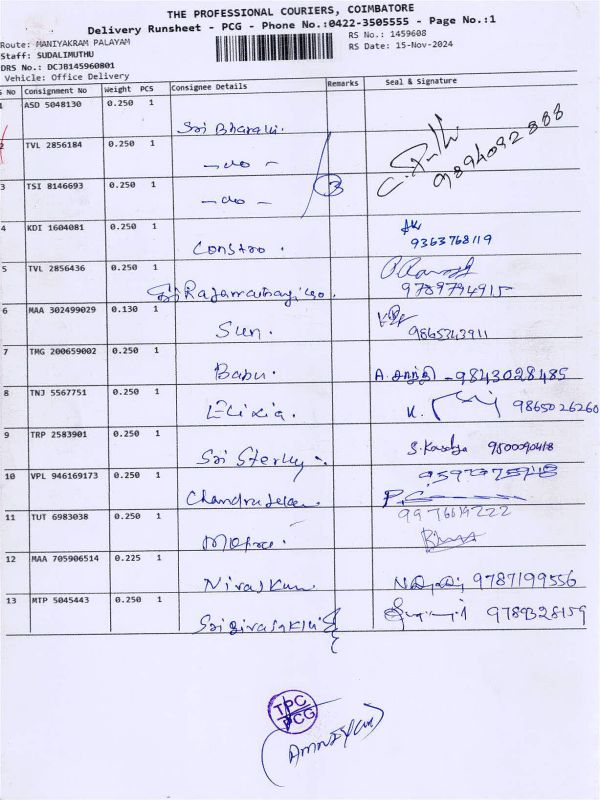 THE PROFESSIONAL COURIERS, COIMBATORE
Delivery Runsheet - PCG - Phone No.:0422-3505555 - Page No.:1
Route: MANIYAKRAM PALAYAM
RS No.: 1459608
Staff: SUDALIMUTHU
RS Date: 15-Nov-2024
DRS No.: DCJB145960801
Vehicle: Office Delivery
S No Consignment No Weight PCS Consignee Details Remarks Seal & Signature
1 ASD 5048130 0.250 1 Sri Bharani.
2 TVL 2856184 0.250 1 -do- 9894092888
3 TSI 8146693 0.250 1 -do- 3
4 KDI 1604081 0.250 1 Constro. 9363768119
5 TVL 2856436 0.250 1 9789794915
6 MAA 302499029 0.130 1 Sun. 9865343911
7 TMG 200659002 0.250 1 Babu. A. சாந்தி - 9843028485
8 TNJ 5567751 0.250 1 K. 9865026260
9 TRP 2583901 0.250 1 Sri 9500090418
10 VPL 946169173 0.250 1
11 TUT 6983038 0.250 1 9976619222
12 MAA 705906514 0.225 1 9787199556
13 MTP 5045443 0.250 1
TPC
PCG